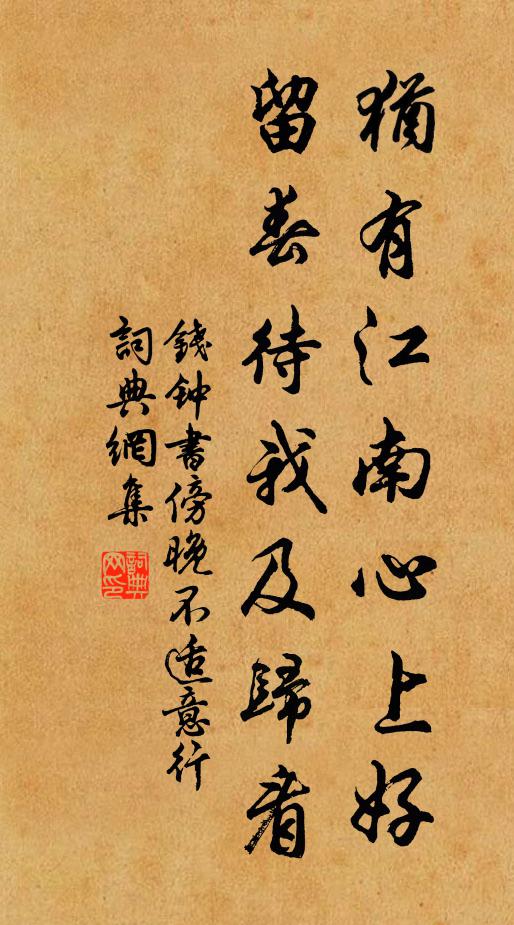 猶有江南心上好
留春待我及歸看
錢钟書傍晚不适意行
詞典網集
詞典
网印